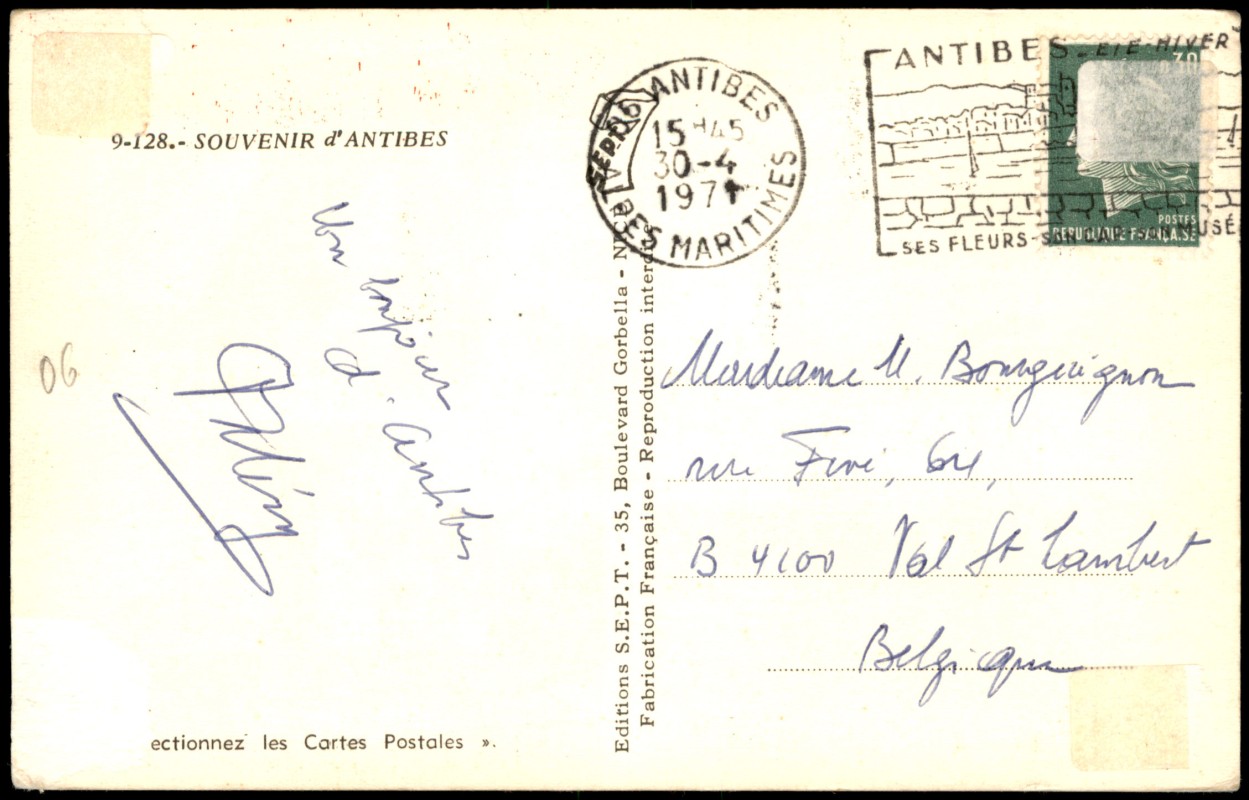 9-128.- SOUVENIR d'ANTIBES
Un bonjour
d'antibes
06
ectionnez les Cartes Postales ».
Editions S.E.P.T. - 35, Boulevard Gorbella - NICE
Fabrication Française - Reproduction interdite
06 ANTIBES
15H45
30-4
1971
ALPES MARITIMES
ANTIBES - ETE-HIVER
SES FLEURS-SON CAP-SON MUSÉ
POSTES
RÉPUBLIQUE FRANÇAISE
Mardame M. Bourguignon
rue Fivé, 64,
B 4100 Val St Lambert
Belgique